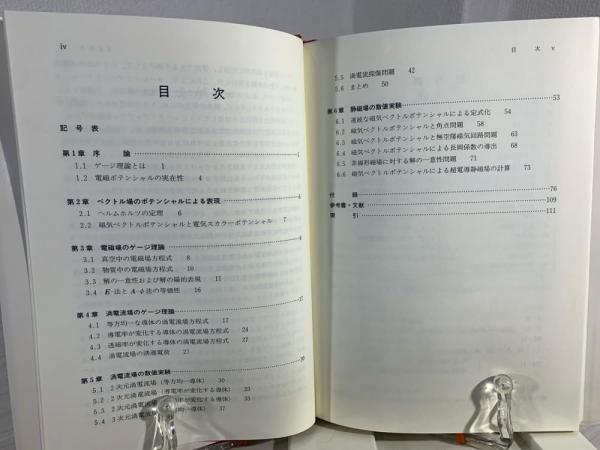 iv
目 次
記 号 表
第1章 序 論 1
1.1 ゲージ理論とは 1
1.2 電磁ポテンシャルの実在性 4
第2章 ベクトル場のポテンシャルによる表現
2.1 ヘルムホルツの定理 6
2.2 磁気ベクトルポテンシャルと電気スカラーポテンシャル 7
第3章 電磁場のゲージ理論
3.1 真空中の電磁場方程式 8
3.2 物質中の電磁場方程式 10
3.3 解の一意性および解の陽的表現 11
3.4 E-法とA-φ法の等価性 16
第4章 渦電流場のゲージ理論 17
4.1 等方均一な導体の渦電流場方程式 17
4.2 導電率が変化する導体の渦電流場方程式 24
4.3 透磁率が変化する導体の渦電流場方程式 27
4.4 渦電流場の誘導電荷 27
第5章 渦電流場の数値実験 30
5.1 2次元渦電流場（等方均一導体） 30
5.2 2次元渦電流場（導電率が変化する導体） 33
5.3 2次元渦電流場
5.4 3次元渦電流場 37
目 次 v
5.5 渦電流探傷問題 42
5.6 まとめ 50
第6章 静磁場の数値実験 53
6.1 連続な磁気ベクトルポテンシャルによる定式化 54
6.2 磁気ベクトルポテンシャルと角点問題 58
6.3 磁気ベクトルポテンシャルと無空隙磁気回路問題 63
6.4 磁気ベクトルポテンシャルによる長岡係数の導出 68
6.5 非線形磁場に対する解の一意性問題 71
6.6 磁気ベクトルポテンシャルによる超電導静磁場の計算 73
付 録 76
参考書・文献 109
索 引 111